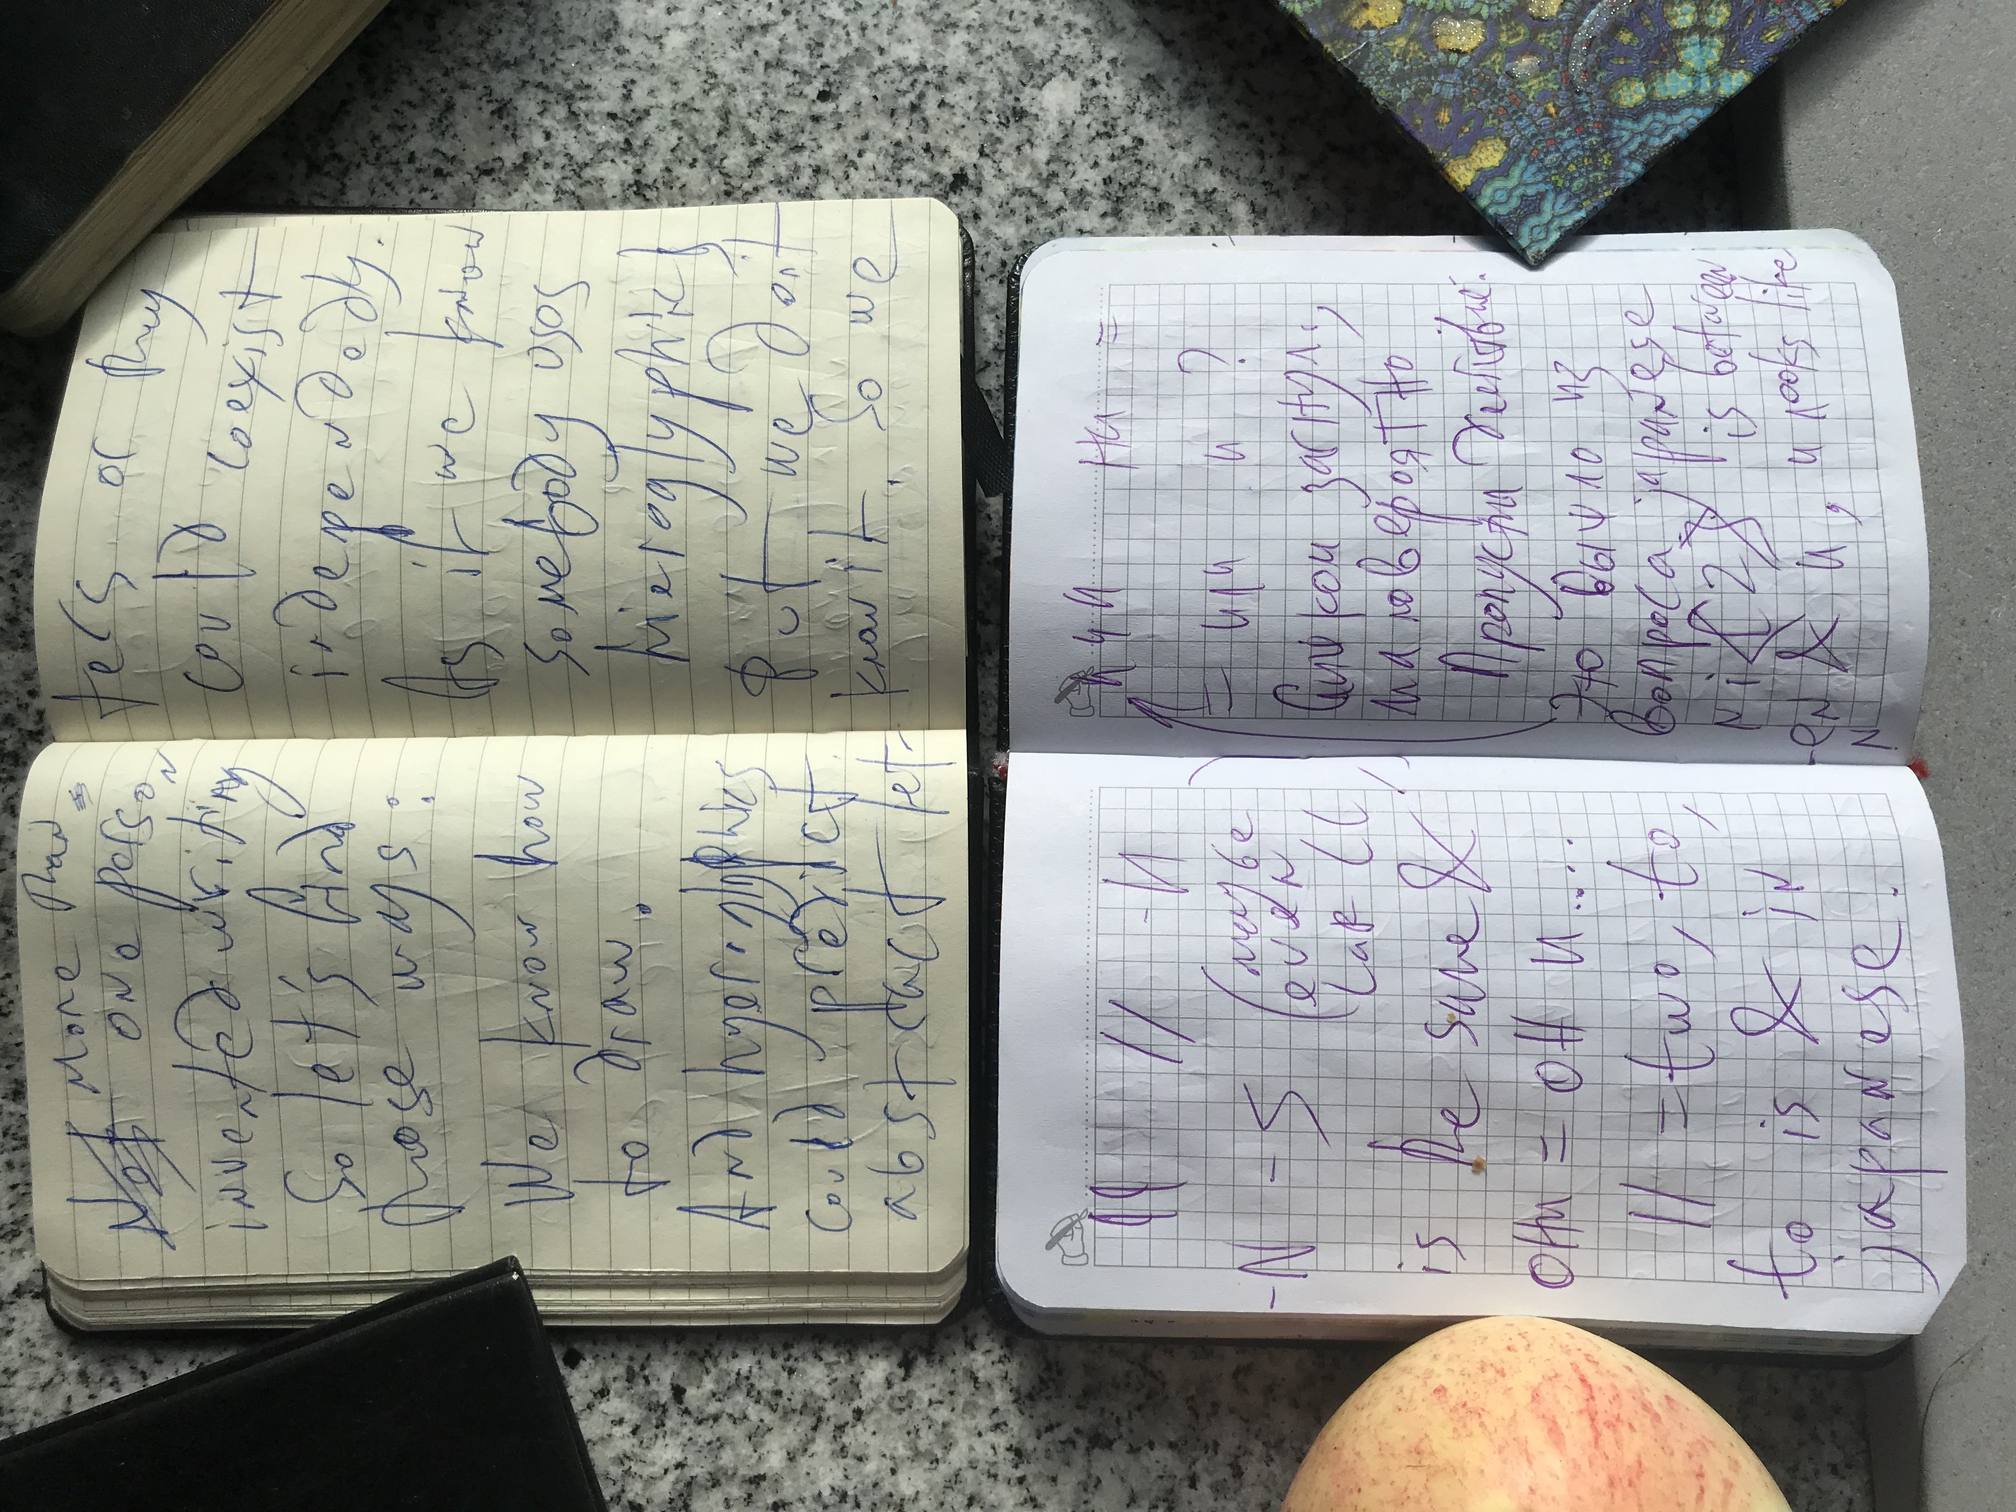 More than
one person
invented writing
So let's find
those ways:
We know how
to draw.
And hyerogyphics
could predict
abstract let-
ters or they
could coexist
independedly.
As if we know
somebody uses
hieroglyphics
but we don't
know it. So we
И -И
-N - S (maybe
even
is the same &
они = он и ...
= two, to,
to is & in
japanese.
= или и ?
Слишком заступ.,
маловероятно
Пропусти действие.
Это вычло из
вопроса. japanese
ni is between
& и, и looks like
N